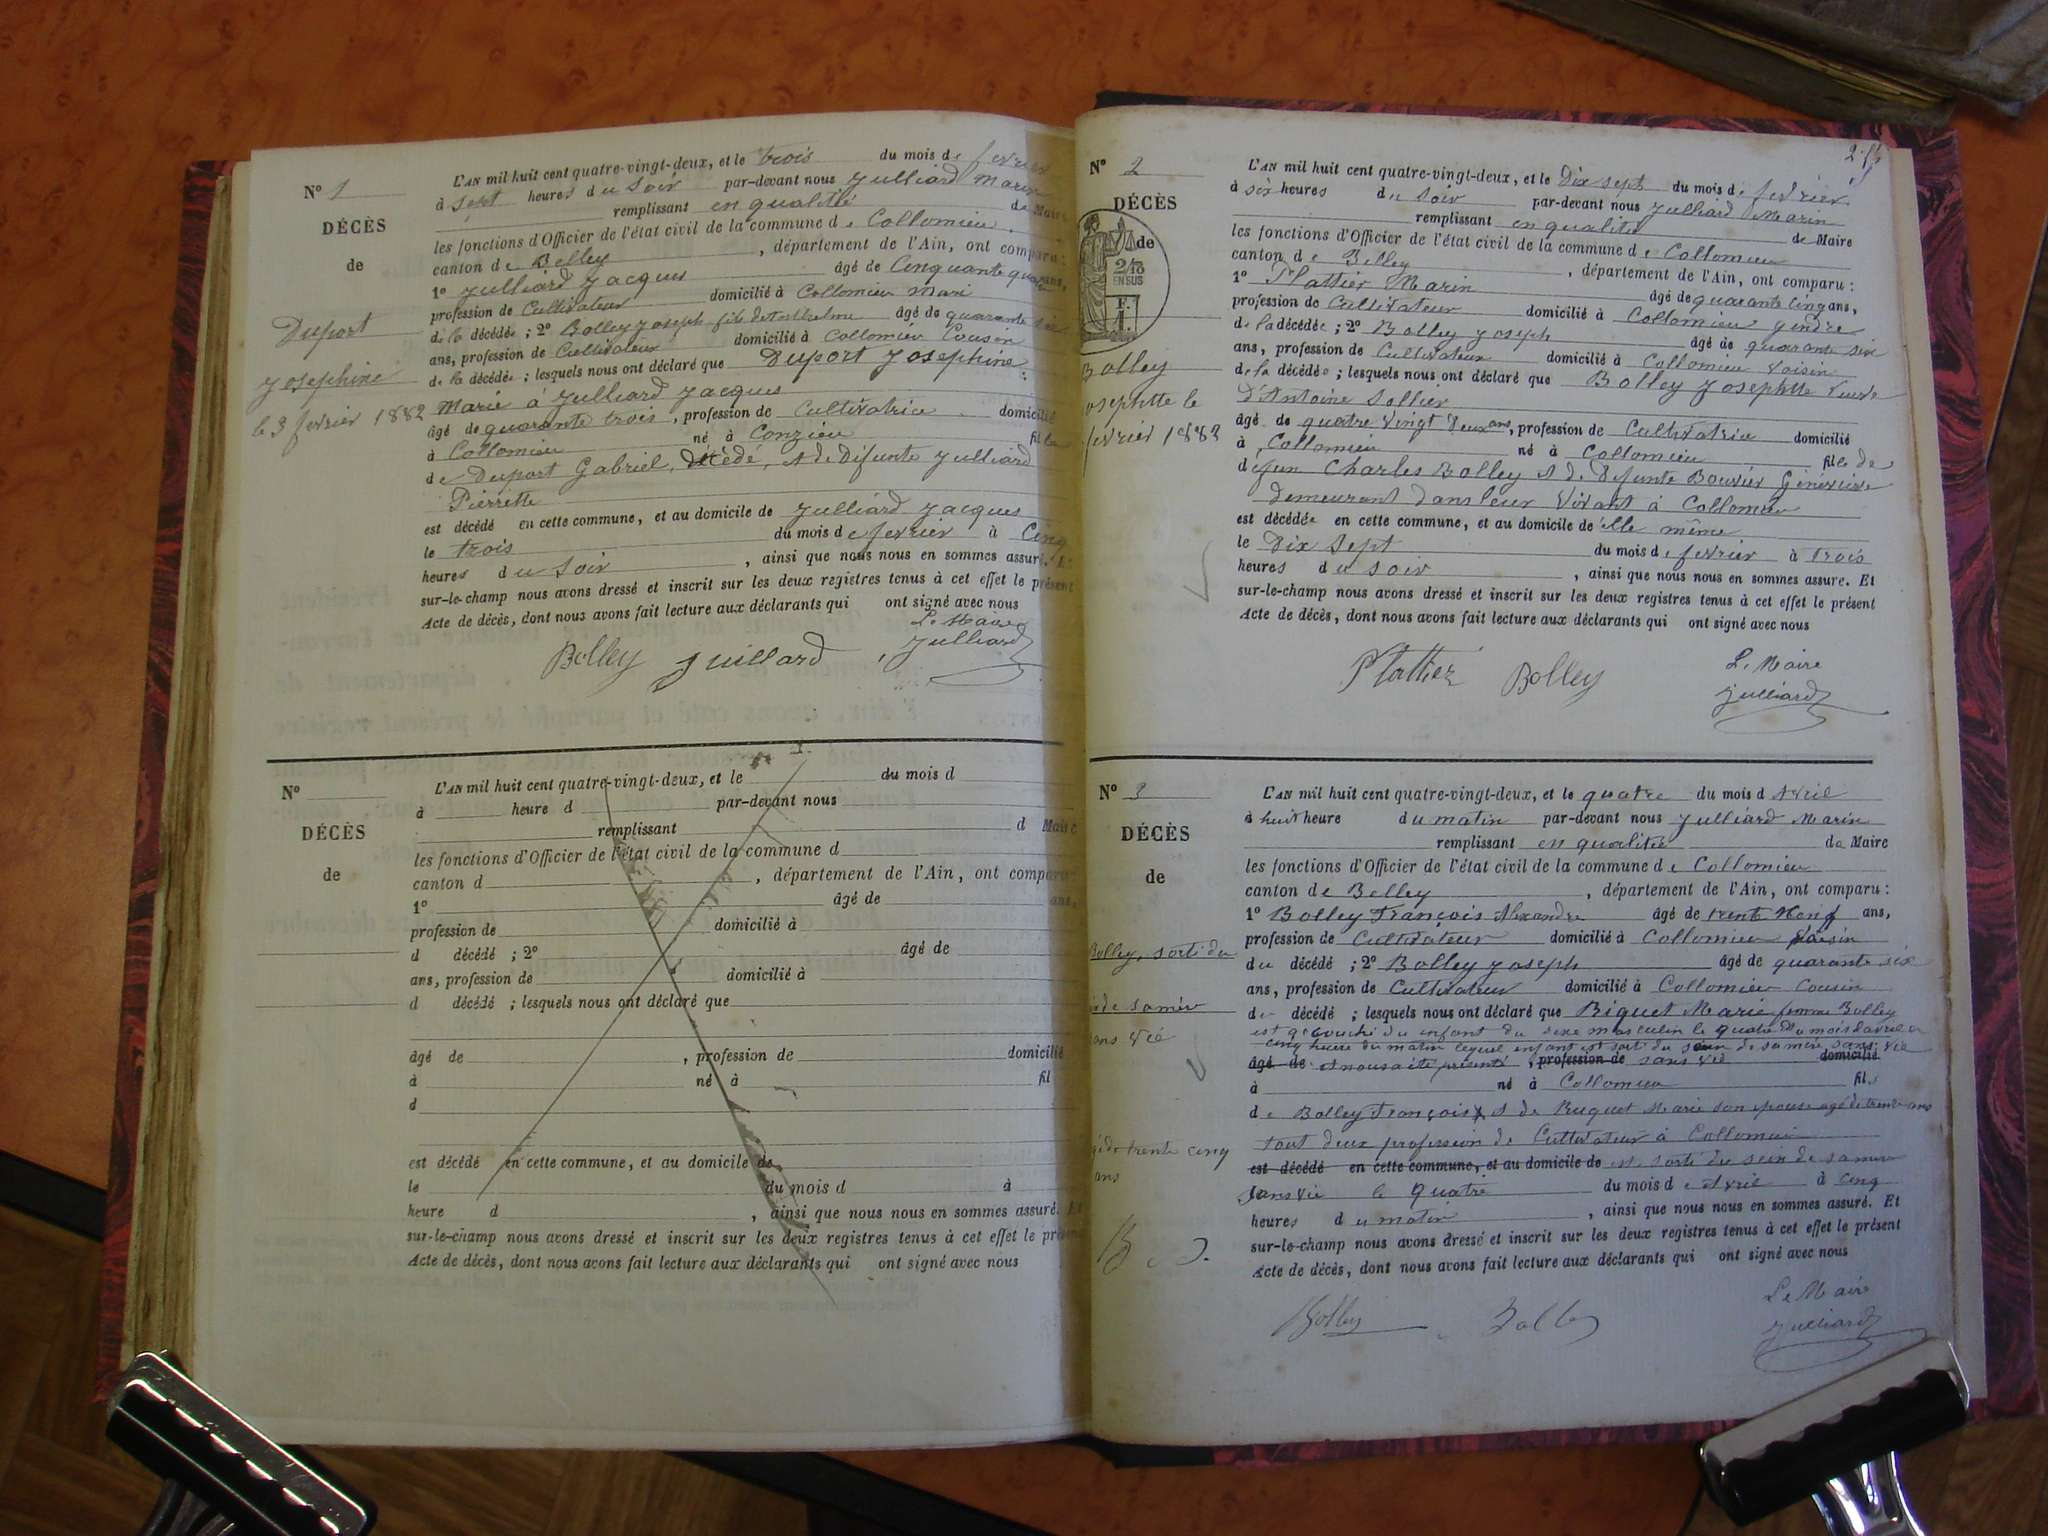 N° 1
DÉCÈS
de
Duport
Josephine
le 3 fevrier 1882
L'AN mil huit cent quatre-vingt-deux, et le trois du mois de fevrier
à sept heures du soir par-devant nous Julliard Marin
remplissant en qualité de Maire
les fonctions d'Officier de l'état civil de la commune de Collomieu
canton de Belley, département de l'Ain, ont comparu:
1° Julliard Jacques âgé de Cinquante quatre ans,
profession de Cultivateur domicilié à Collomieu Mari
de la décédée; 2° Bolley Joseph fils de âgé de quarante six
ans, profession de Cultivateur domicilié à Collomieu Cousin
de la décédée; lesquels nous ont déclaré que Duport Josephine
Marié a Julliard Jacques
âgé de quarante trois, profession de Cultivatrice domicilié
à Collomieu né à Conzieu fille
de Duport Gabriel, décédé, & de Difunte Julliard
Pierrette
est décédé en cette commune, et au domicile de Julliard Jacques
le trois du mois de fevrier à Cinq
heures du soir, ainsi que nous nous en sommes assuré. Et
sur-le-champ nous avons dressé et inscrit sur les deux registres tenus à cet effet le présent
Acte de décès, dont nous avons fait lecture aux déclarants qui ont signé avec nous
Le Maire
Bolley Juillard Julliard
N°
DÉCÈS
de
L'AN mil huit cent quatre-vingt-deux, et le du mois d
à heure d par-devant nous
remplissant d Maire
les fonctions d'Officier de l'état civil de la commune d
canton d , département de l'Ain, ont comparu:
1° âgé de ans,
profession de domicilié à
d décédé ; 2° âgé de
ans, profession de domicilié à
d décédé ; lesquels nous ont déclaré que
âgé de , profession de domicilié
à né à fil
d
est décédé en cette commune, et au domicile de
le du mois d à
heure d , ainsi que nous nous en sommes assuré. Et
sur-le-champ nous avons dressé et inscrit sur les deux registres tenus à cet effet le présent
Acte de décès, dont nous avons fait lecture aux déclarants qui ont signé avec nous
N° 2
DÉCÈS
de
2/10
EN SUS
F.
1.
Bolley
osephtte le
fevrier 1882
L'AN mil huit cent quatre-vingt-deux, et le Dix sept du mois de fevrier
à six heures du soir par-devant nous Julliard Marin
remplissant en qualité de Maire
les fonctions d'Officier de l'état civil de la commune de Collomieu
canton de Belley, département de l'Ain, ont comparu:
1° Plattier Marin âgé de quarante cinq ans,
profession de Cultivateur domicilié à Collomieu gendre
de la décédée; 2° Bolley Joseph âgé de quarante six
ans, profession de Cultivateur domicilié à Collomieu voisin
de la décédée; lesquels nous ont déclaré que Bolley Josephtte veuve
D'Antoine Sollier
âgé de quatre vingt Deux ans, profession de Cultivatrice domicilié
à Collomieu né à Collomieu fille de
défun Charles Bolley & de Defunte Bouvier Géneviève
demeurant dans leur vivant à Collomieu
est décédée en cette commune, et au domicile de elle même
le Dix Sept du mois de fevrier à trois
heures du soir, ainsi que nous nous en sommes assure. Et
sur-le-champ nous avons dressé et inscrit sur les deux registres tenus à cet effet le présent
Acte de décès, dont nous avons fait lecture aux déclarants qui ont signé avec nous
Plattier Bolley Le Maire
Julliard
N° 3
DÉCÈS
de
Bolley, sorti du
de samère
ans vie
trente cinq
ans
L'AN mil huit cent quatre-vingt-deux, et le quatre du mois d Avril
à huit heure du matin par-devant nous Julliard Marin
remplissant en qualitée de Maire
les fonctions d'Officier de l'état civil de la commune de Collomieu
canton de Belley, département de l'Ain, ont comparu:
1° Bolley François Alexandre âgé de trente Neuf ans,
profession de Cultivateur domicilié à Collomieu voisin
du décédé ; 2° Bolley Joseph âgé de quarante six
ans, profession de Cultivateur domicilié à Collomieu Cousin
d décédé ; lesquels nous ont déclaré que Biguet Marie femme Bolley
est acouché du enfant du sexe masculin le quatre du mois davril a
cinq heure du matin lequel enfant est sorti du sein de samère sans vie
âgé de et nous a été présenté, profession de sans vie domicilié
à né à Collomieu fils
de Bolley François & de Buguet Marie son epouse agé de trente ans
tout deux profession de Cultivateur à Collomieu
est décédé en cette commune, et au domicile de est sorti du sein de samère
sans vie le quatre du mois de Avril à cinq
heures du matin, ainsi que nous nous en sommes assuré. Et
sur-le-champ nous avons dressé et inscrit sur les deux registres tenus à cet effet le présent
Acte de décès, dont nous avons fait lecture aux déclarants qui ont signé avec nous
Le Maire
Bolley Bolley Julliard